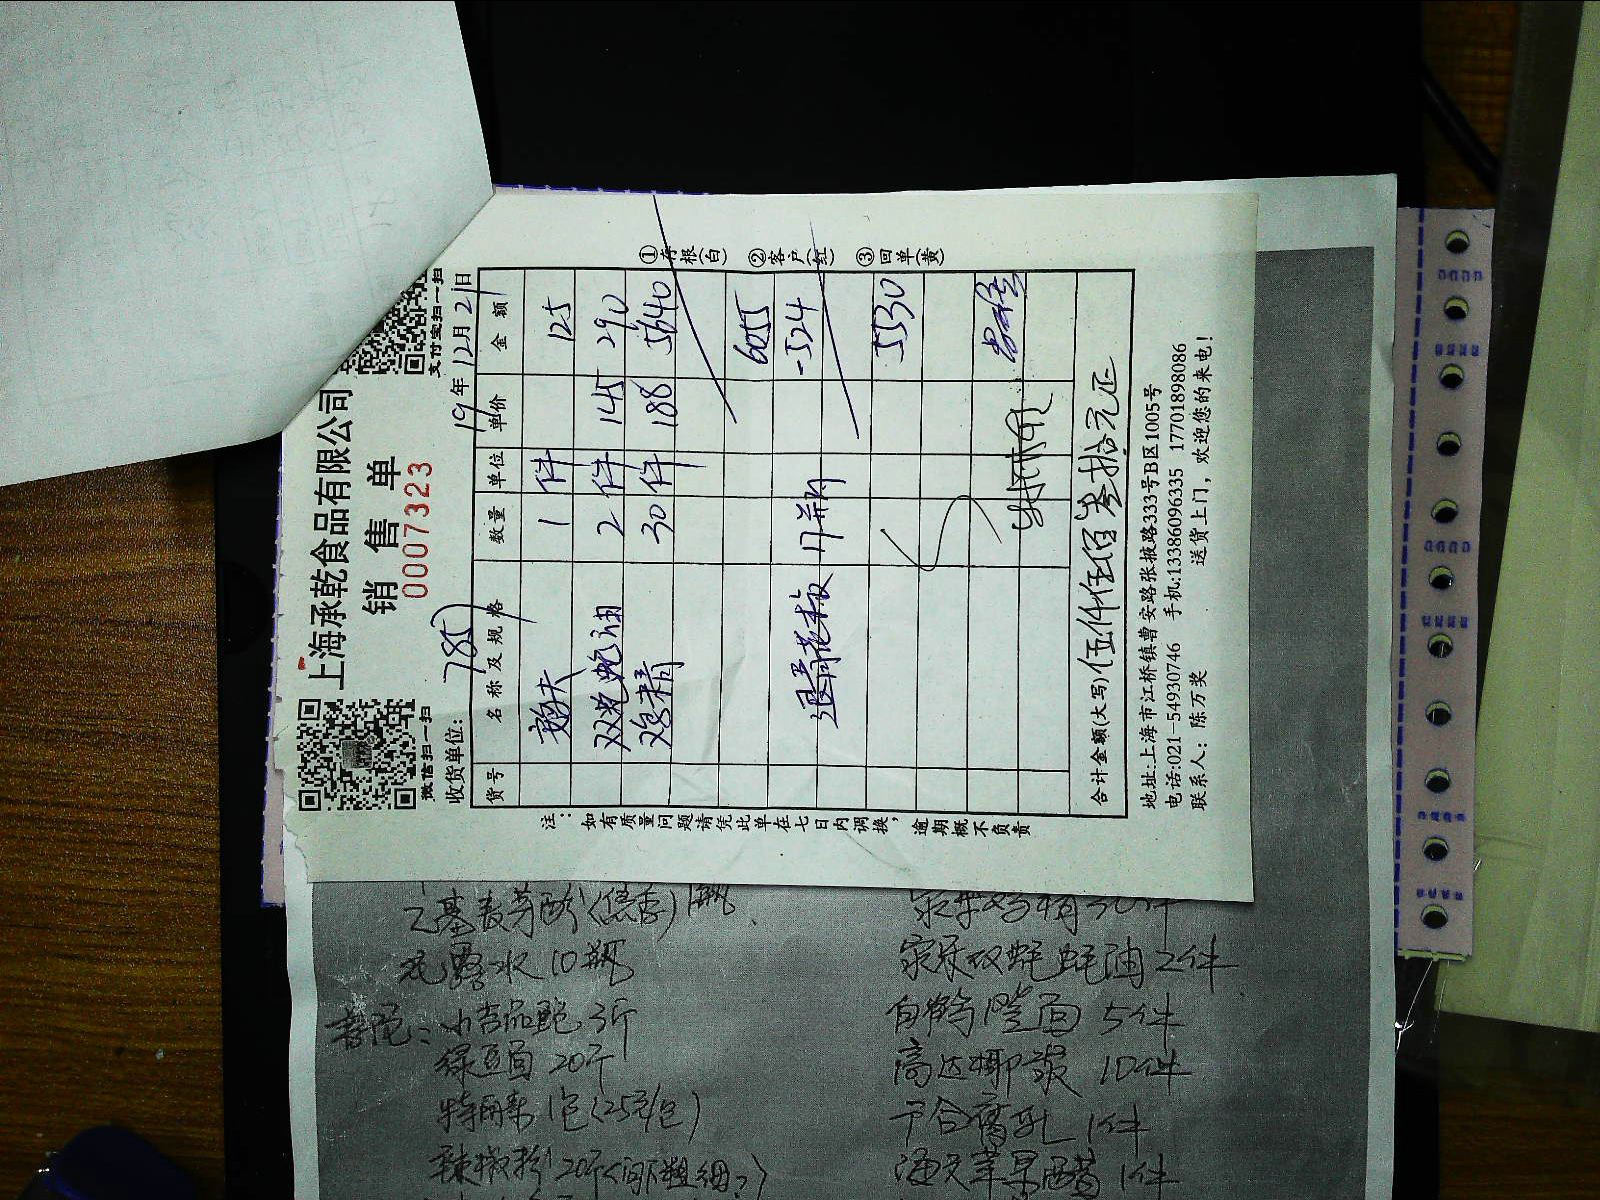 上海承乾食品有限公司
销售单
0007323
微信扫一扫
支付宝扫一扫
收货单位: 785
19年12月21日
货号 名称及规格 数量 单位 单价 金额
1 件 125
双 蚝油 2 件 145 290
鸡精 30 件 188 5640
6055
退青花椒 -524
5530
合计金额(大写)伍仟伍佰叁拾元正
①存根(白) ②客户(红) ③回单(黄)
注: 如有质量问题请凭此单在七日内调换, 逾期概不负责
地址:上海市江桥镇曹安路张掖路333号B区1005号
电话:021-54930746 手机:13386096335 17701898086
联系人: 陈万奖 送货上门, 欢迎您的来电!
乙基麦芽酚(焦香)1瓶
花露水 10瓶
小吉品鲍 3斤
绿豆面 20斤
特丽素 1包(25元/包)
辣椒粉 20斤
家乐鸡精 30件
家乐双蚝蚝油 2件
白鹤 面 5件
高达椰浆 10件
广合腐乳 1件
海天苹果醋 1件